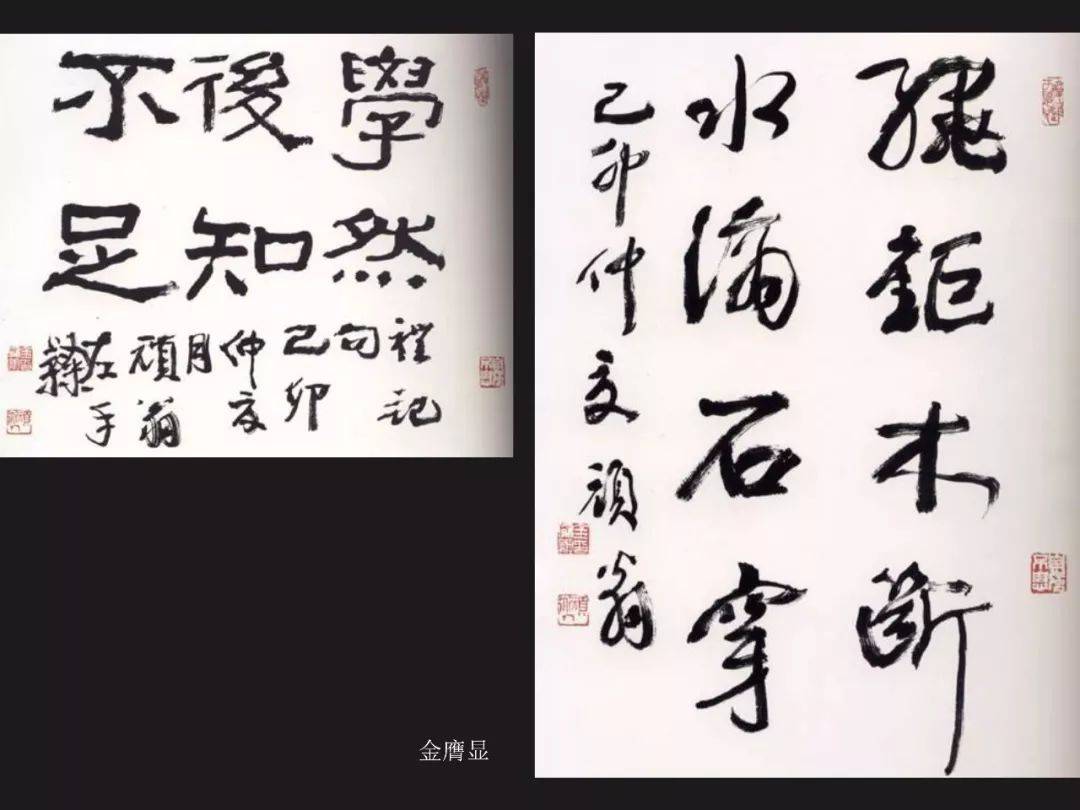 學然
後知
不足
禮記
句
己卯
仲夏
月
頑翁
左手
隸
繩鉅木斷
水滴石穿
己卯仲夏頑翁
金膺显